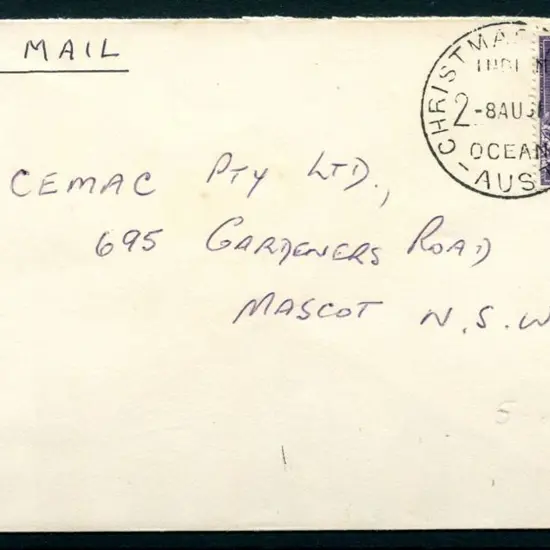 MAIL
CHRISTMAS
INDIAN
2-8AU61
OCEAN
AUS
CEMAC PTY LTD.,
695 GARDENERS ROAD
MASCOT N.S.W
5